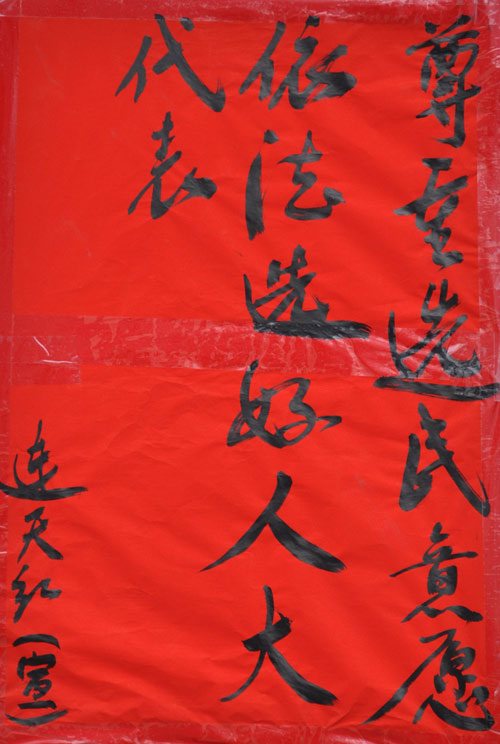 尊重选民意愿
依法选好人大
代表
连天红(宣)